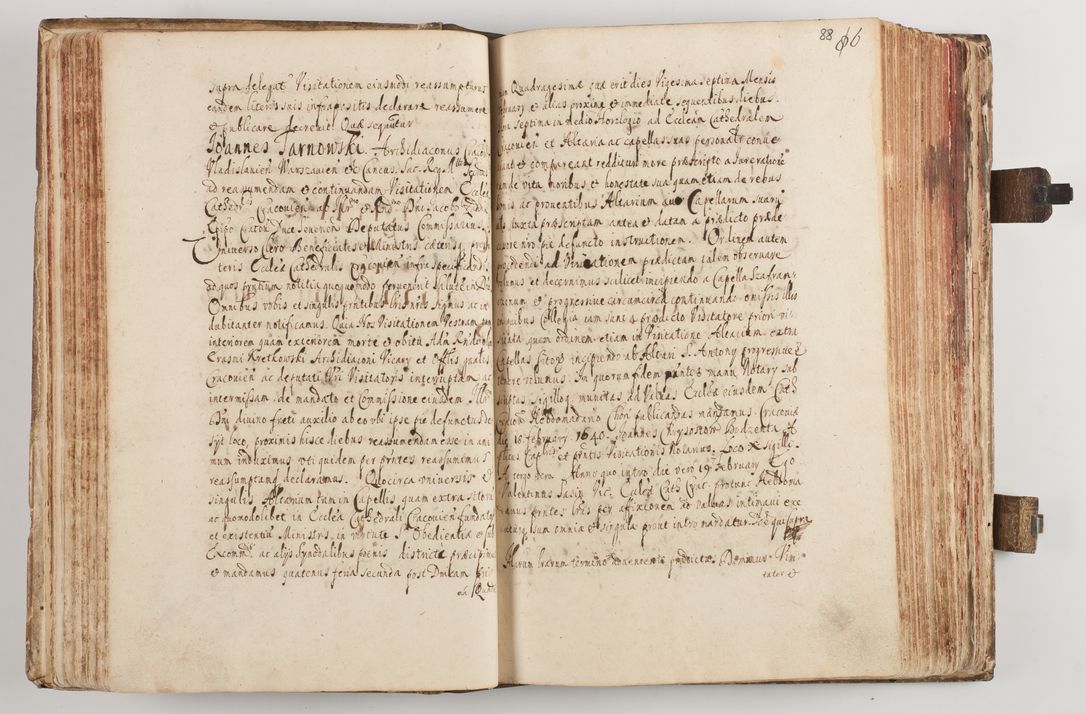 supra delegat Visitationem eiusmodi reassumpturus
eandem literis suis infrapositis declarare reassumere
et publicare decrevit. Quæ sequutur
Ioannes Tarnowski Archidiaconus Cracov
Vladislavien Warszavien et Cancus. Sac. Reg. Mttis
ad reassumendam et continuandam Visitationem Ecclæ
Cathedr. Cracovien ab Illmo et Rndmo Dni Iacobo Zadzik
Epo Cracov Duce Severien Deputatus Commissarius.
Universo Clero Beneficiatis et Ministris cæterisq pres
teris Ecclæ Cathedralis Cracovien infra specificandis
ad quos præntium notitia quoquomodo pervenerit Salute in Dno
Omnibus vobis et singulis præntibus lris nris Signus ac in
dubitanter notificamus. Quia Nos Visitationem Vestram tam
interiorem quam exteriorem morte et obitu Adm Rndi olim
Erasmi Kretkowski Archidiaconi Vicary et Offlis gnalis
Cracovien ac deputati Vri Visitatoris interruptam ac
intermissam de mandato et Commissione eiusdem Illmi
Dni divino freti auxilio ab eo ubi ipse pie defunctus de
syt loco, proximis hisce diebus reassumendam esse in ani
mum induximus uti quidem per prntes reassumimus et
reassumptam declaramus. Quocirca universis et
singulis Altarium tam in Capellis quam extra sitorum
ac quomodolibet in Ecclia Cathedrali Cracovien fundatis
et existentiu Ministris, in virtute S. Obedientiæ et sub
Excommis ac alys Synodalibus poenis districte præcipimus
et mandamus quatenus feria secunda post Dnicam Pri
ma Quadr
ma Quadragesimæ quæ erit dies Vigesima Septima Mensis
bruary et alias proxime et immediate sequentibus diebus
hora Septima in medio Horologio ad Ecclæam Cathedralem
Cracovien et Altaria ac Capellas suas personalr conve
niat et compareant reddituri more præscripto a Iure ratione
unde vita moribus, et honestate sua quam etiam de rebus
omis ac proventibus Altarium aut Capellarum Suarum
alis iuxta præscriptum antea et datam a prædicto præde
cessore nro pie defuncto instructionem. Ordinem autem
procedendi ad Visitationem prædictam talem observare
volumus et decernimus scilicet incipiendo a Capella Szafran
cinum et progressive circumcirca continuando omissis illis
omnibus Collegia iam sunt a prædicto Visitatore priori vi
sitata quem ordinem etiam in Visitatione Altarium extra
Capellas sitorum incipiendo ab Altari S. Antony progressive
tenere volumus. In quorum fidem præntes manu Notary sub
scriptas Sigilloq munitas ad Valvas Ecclæa eiusdem Cath
Cracovn Hebdomadario Chori publicandas mandamus. Cracoviæ
die 18 February 1640. Ioannes Chrysostom Bodzenta A
plicus Caplris et præntis Visitationis Notarius. Loco Sigilli
A tergo vero. Anno quo intro die vero 19 February Ego
Valentinus Pasin Vic. Ecclæ Cath Crac. protunc Hebdoma
darius prntes lras per affixionem ad Valvas intimavi exe
cutusq sum omnia et singula prout intro mandatur. Idem qui supra
Harum lrarum termino advenientis prædictæ Dominus. Visi
tator et
88
86